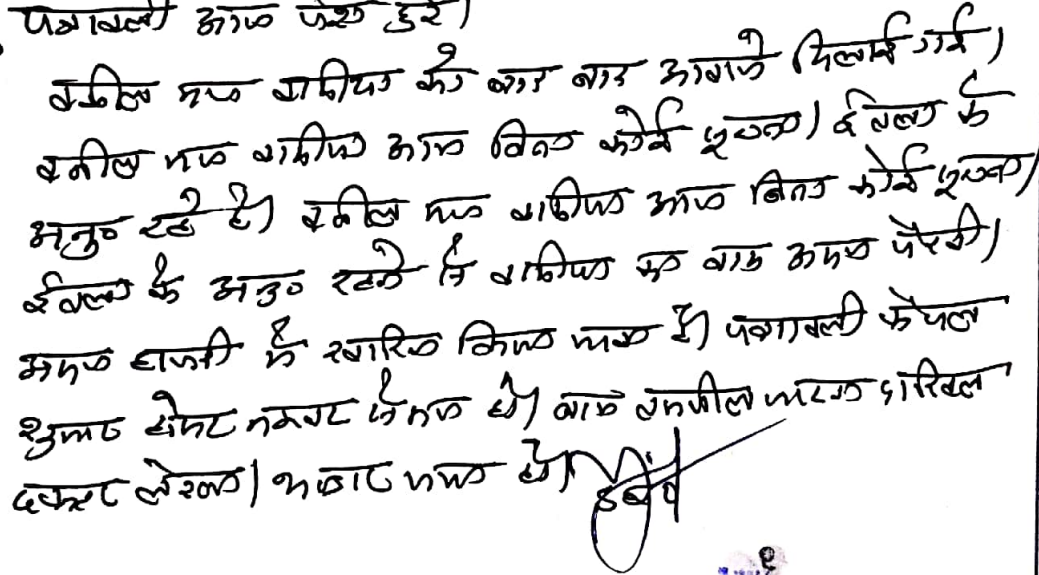 पत्रावली आज पेश हुई।
वकील मय वादीया को बार बार आवाजे दिलाई गई।
वकील मय वादीया आज बिना कोई सूचना/ईतला के
अनु० रहे है। वकील मय वादीया आज बिना कोई सूचना/
ईतला के अनु० रहने से वादीया का वाद अदम पैरवी।
अदम हाजरी में खारिज किया जाता है। पत्रावली फैसल
शुमार होकर नम्बर से कम हो। बाद तकमील दाखिल
दफ्तर लेखा। हो।